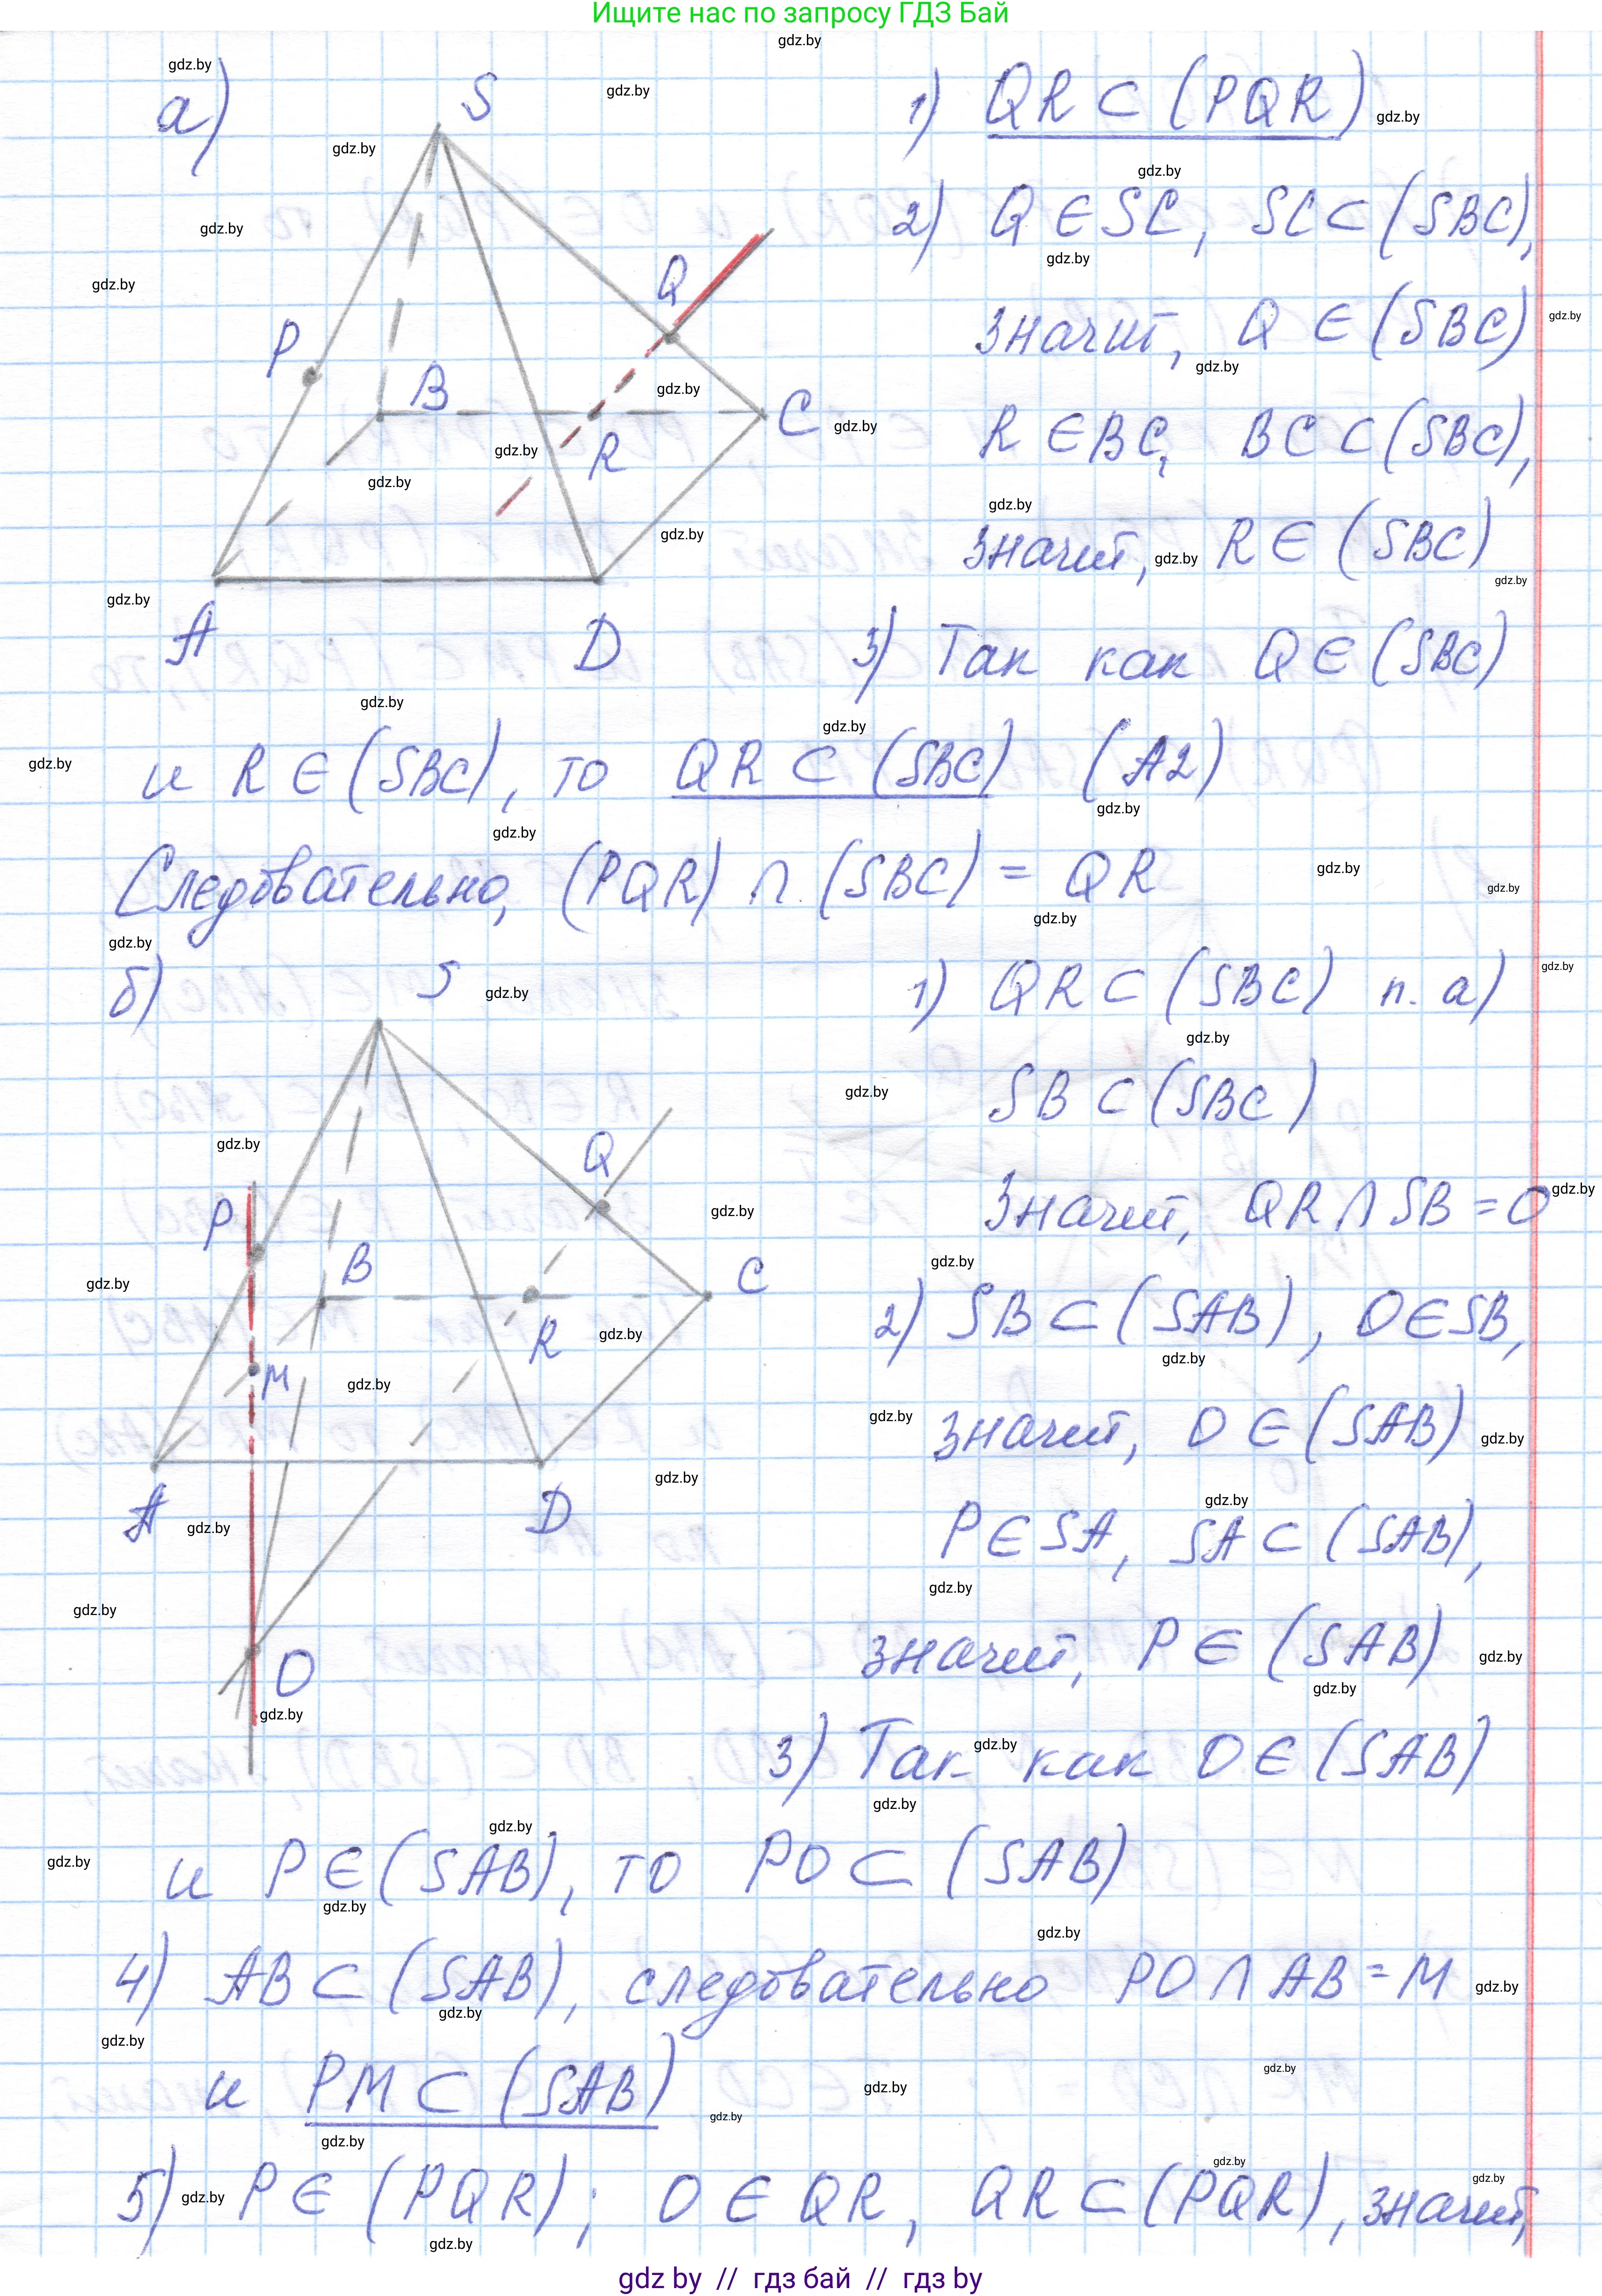 Ищите нас по запросу ГДЗ Бай
gdz.by
а)
S
P
Q
B
R
C
A
D
1) QR ⊂ (PQR)
2) Q ∈ SC, SC ⊂ (SBC),
значит, Q ∈ (SBC)
R ∈ BC, BC ⊂ (SBC),
значит, R ∈ (SBC)
3) Так как Q ∈ (SBC)
и R ∈ (SBC), то QR ⊂ (SBC) (A2)
Следовательно, (PQR) ∩ (SBC) = QR
б)
S
P
Q
B
C
R
M
A
D
O
1) QR ⊂ (SBC) п. а)
SB ⊂ (SBC)
Значит, QR ∩ SB = O
2) SB ⊂ (SAB), O ∈ SB,
значит, O ∈ (SAB)
P ∈ SA, SA ⊂ (SAB),
значит, P ∈ (SAB)
3) Так как O ∈ (SAB)
и P ∈ (SAB), то PO ⊂ (SAB)
4) AB ⊂ (SAB), следовательно PO ∩ AB = M
и PM ⊂ (SAB)
5) P ∈ (PQR); O ∈ QR, QR ⊂ (PQR), значит,
gdz by // гдз бай // гдз by